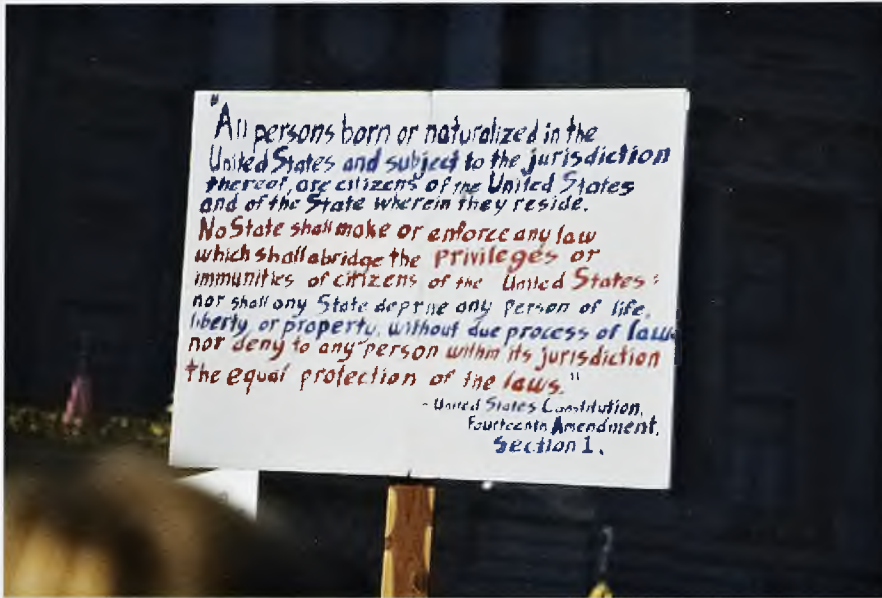 "All persons born or naturalized in the
United States and subject to the jurisdiction
thereof, are citizens of the United States
and of the State wherein they reside.
No State shall make or enforce any law
which shall abridge the privileges or
immunities of citizens of the United States;
nor shall any State deprive any person of life,
liberty, or property, without due process of law;
nor deny to any person within its jurisdiction
the equal protection of the laws."
- United States Constitution,
Fourteenth Amendment,
Section 1.